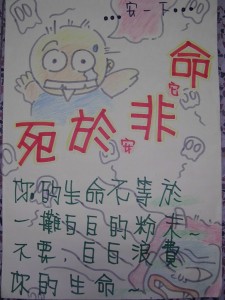 …安一下…
死於非命
你的生命不等於
一難白白的粉末~
不要,白白浪費
你的生命~